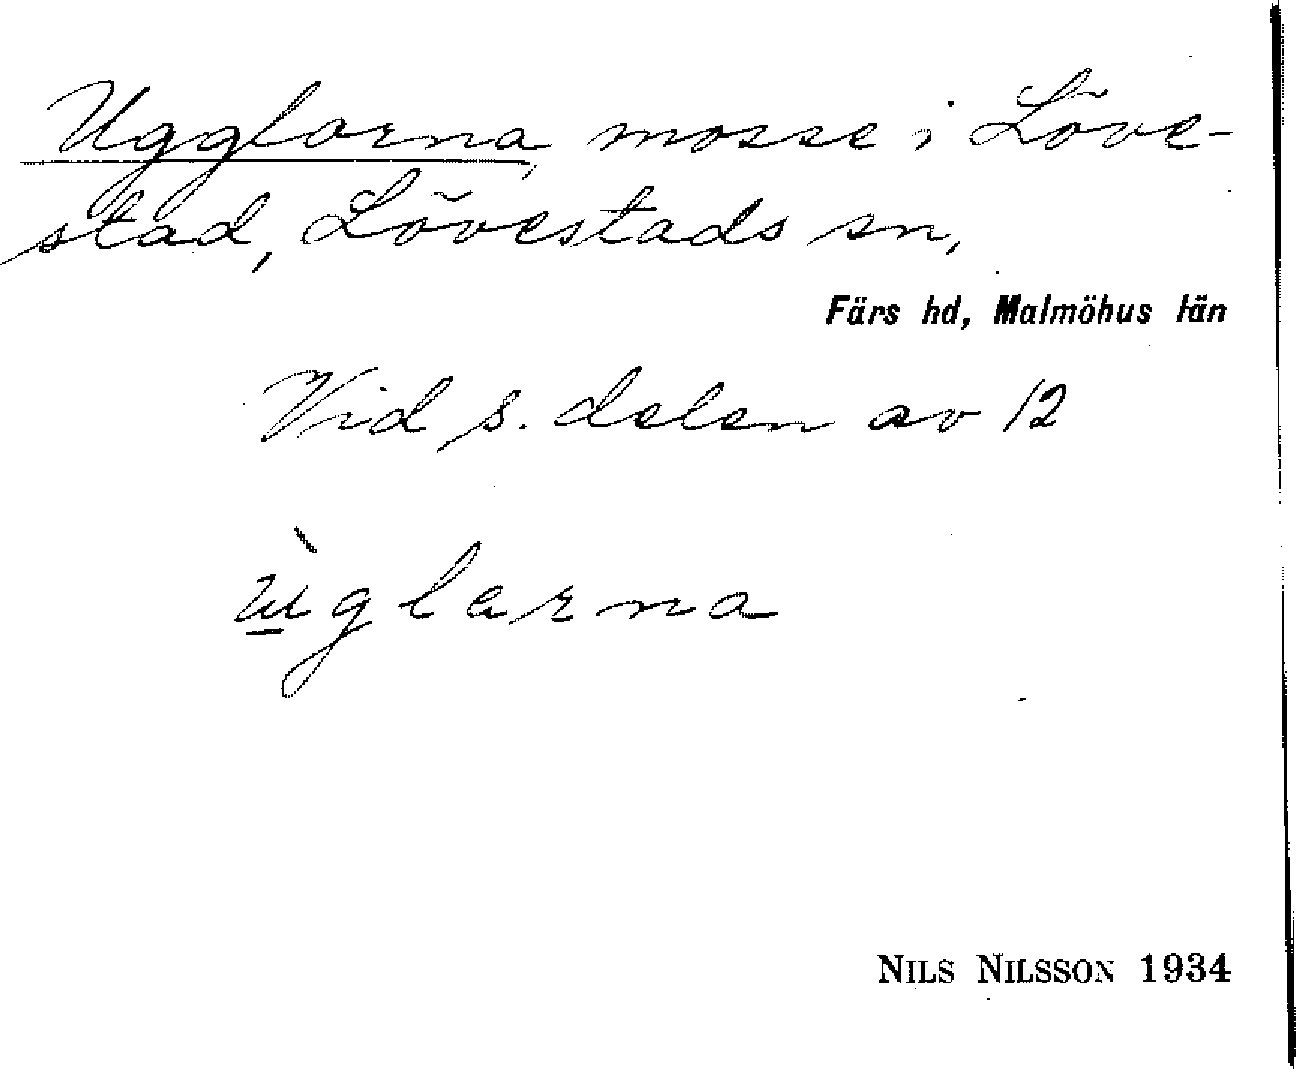 Ugglarna, mosse i Löve-
stad, Lövestads sn,
Färs hd, Malmöhus län
Vid s. delen av 12
ù̱glarna
NILS NILSSON 1934